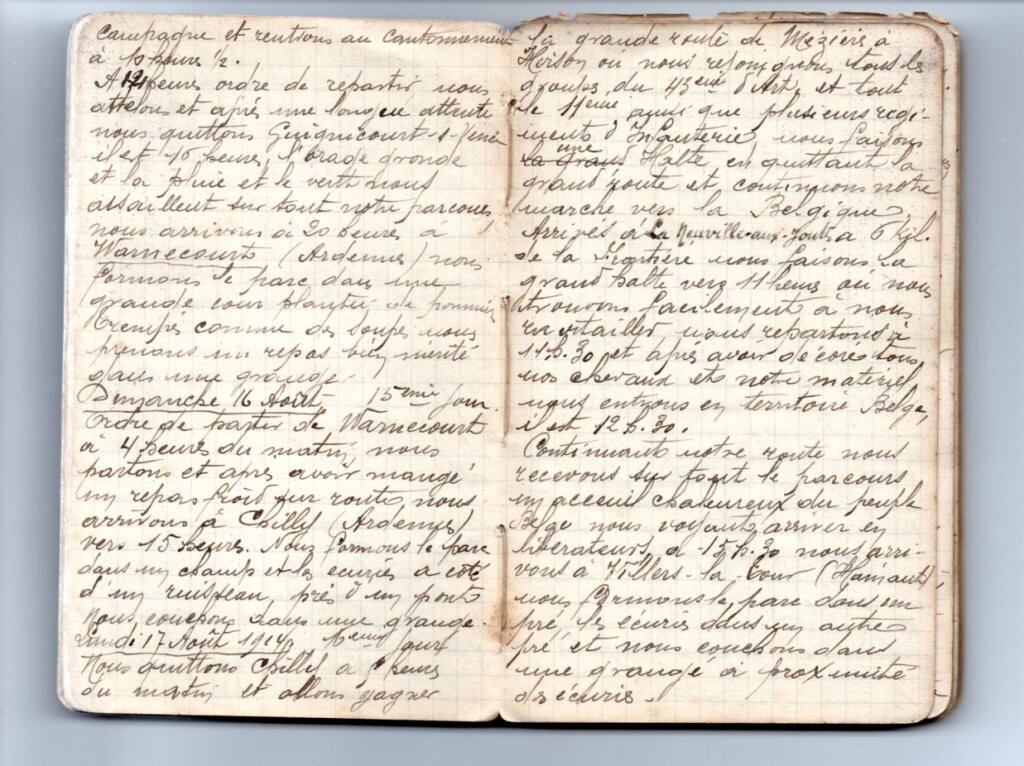 campagne et rentrons au cantonnement
à heures ½.
A heures ordre de repartir nous
attelons et après une longue attente
nous quittons Guignicourt-s-Vence
il et 16 heures, l'orage gronde
et la pluie et le vent nous
assaillent sur tout notre parcours
nous arrivons à 20 heures a
Warnecourt (Ardennes) nous
formons le parc dans une
grande cour plantée de pommiers
Trempés comme des soupes nous
prenons un repas bien mérité
dans une grange
Dimanche 16 Août 15ème jour.
Ordre de partir de Warnecourt
à 4 heures du matin nous
partons et apres avoir mangé
un repas froid sur route nous
arrivons à Chilly (Ardennes)
vers 15 heures. Nous formons le parc
dans un champ et les écuries a coté
d'un ruisseau, près d'un pont
Nous couchons dans une grange.
Lundi 17 Août 1914 16eme jour
Nous quittons Chilly a 5 heures
du matin et allons gagner
la grande route de Mézières à
Hirson ou nous rejoignons tous les
groupes du 43eme d'Art. et tout
le 11eme ainsi que plusieurs regi-
ments d'Infanterie, nous faisons
une Halte en quittant la
grand route et continuons notre
marche vers la Belgique.
Arrivés a La Neuville-aux-Joutes a 6 kil.
de la Frontière nous faisons la
grand halte vers 11 heures où nous
trouvons facilement à nous
ravitailler, nous repartons à
11h.30 et après avoir décoré tous
nos chevaux et notre matériel
nous entrons en territoire Belge,
il est 12h.30.
Continuant notre route nous
recevons sur tout le parcours
un acceuil chaleureux du peuple
Belge nous voyant arriver en
libérateurs, a 15h.30 nous arri-
vons à Villers-la-Tour (Hainaut)
nous formons le parc dans un
pré les écuries dans un autre
pré et nous couchons dans
une grange à proximité
des écuries.